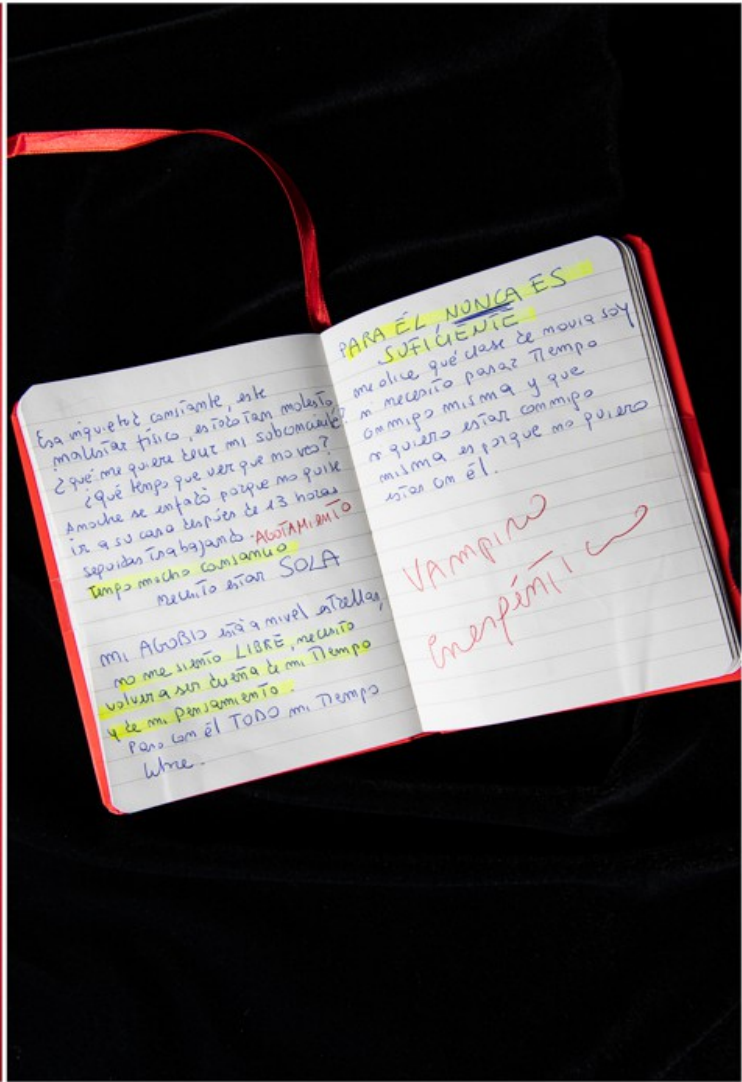 Esa inquietud constante, este
malestar físico, es todo tan molesto
¿qué me quiere decir mi subconsciente?
¿Qué tengo que ver que no veo?
Anoche se enfadó porque no quise
ir a su casa después de 13 horas
seguidas trabajando. AGOTAMIENTO
Tengo mucho cansancio
necesito estar SOLA
mi AGOBIO está a nivel estrellas,
no me siento LIBRE, necesito
volver a ser dueña de mi tiempo
y de mi pensamiento.
Paso con él TODO mi tiempo
libre.
PARA ÉL NUNCA ES
SUFICIENTE
me dice qué clase de novia soy
si necesito pasar tiempo
conmigo misma y que
si quiero estar conmigo
misma es porque no quiero
estar con él.
VAMPIRO
energético